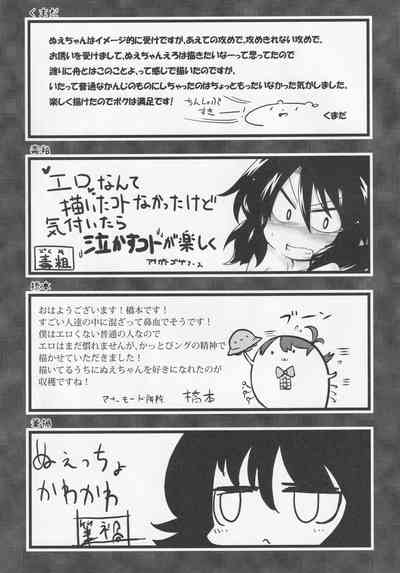 くまだ
ぬえちゃんはイメージ的に受けですが、あえての攻めで、攻めきれない攻めで、
お誘いを受けまして、ぬえちゃんえろは描きたいなーって思ってたので
渡りに舟とはこのことよ、って感じで描いたのですが、
いたって普通なかんじのものにしちゃったのはちょっともったいなかった気がしました。
楽しく描けたのでボクは満足です!
くまだ
毒粗
エロなんて
描いたコトなかったけど
気付いたら
泣かすコトが楽しく
毒粗
橋本
おはようございます！橋本です！
すごい人達の中に混ざって鼻血でそうです！
僕はエロくない普通の人なので
エロはまだ慣れませんが、かっとびングの精神で
描かせていただきました！
描いてるうちにぬえちゃんを好きになれたのが
収穫ですね！
ブーン
橋本
ぬえっちょ
かわかわ